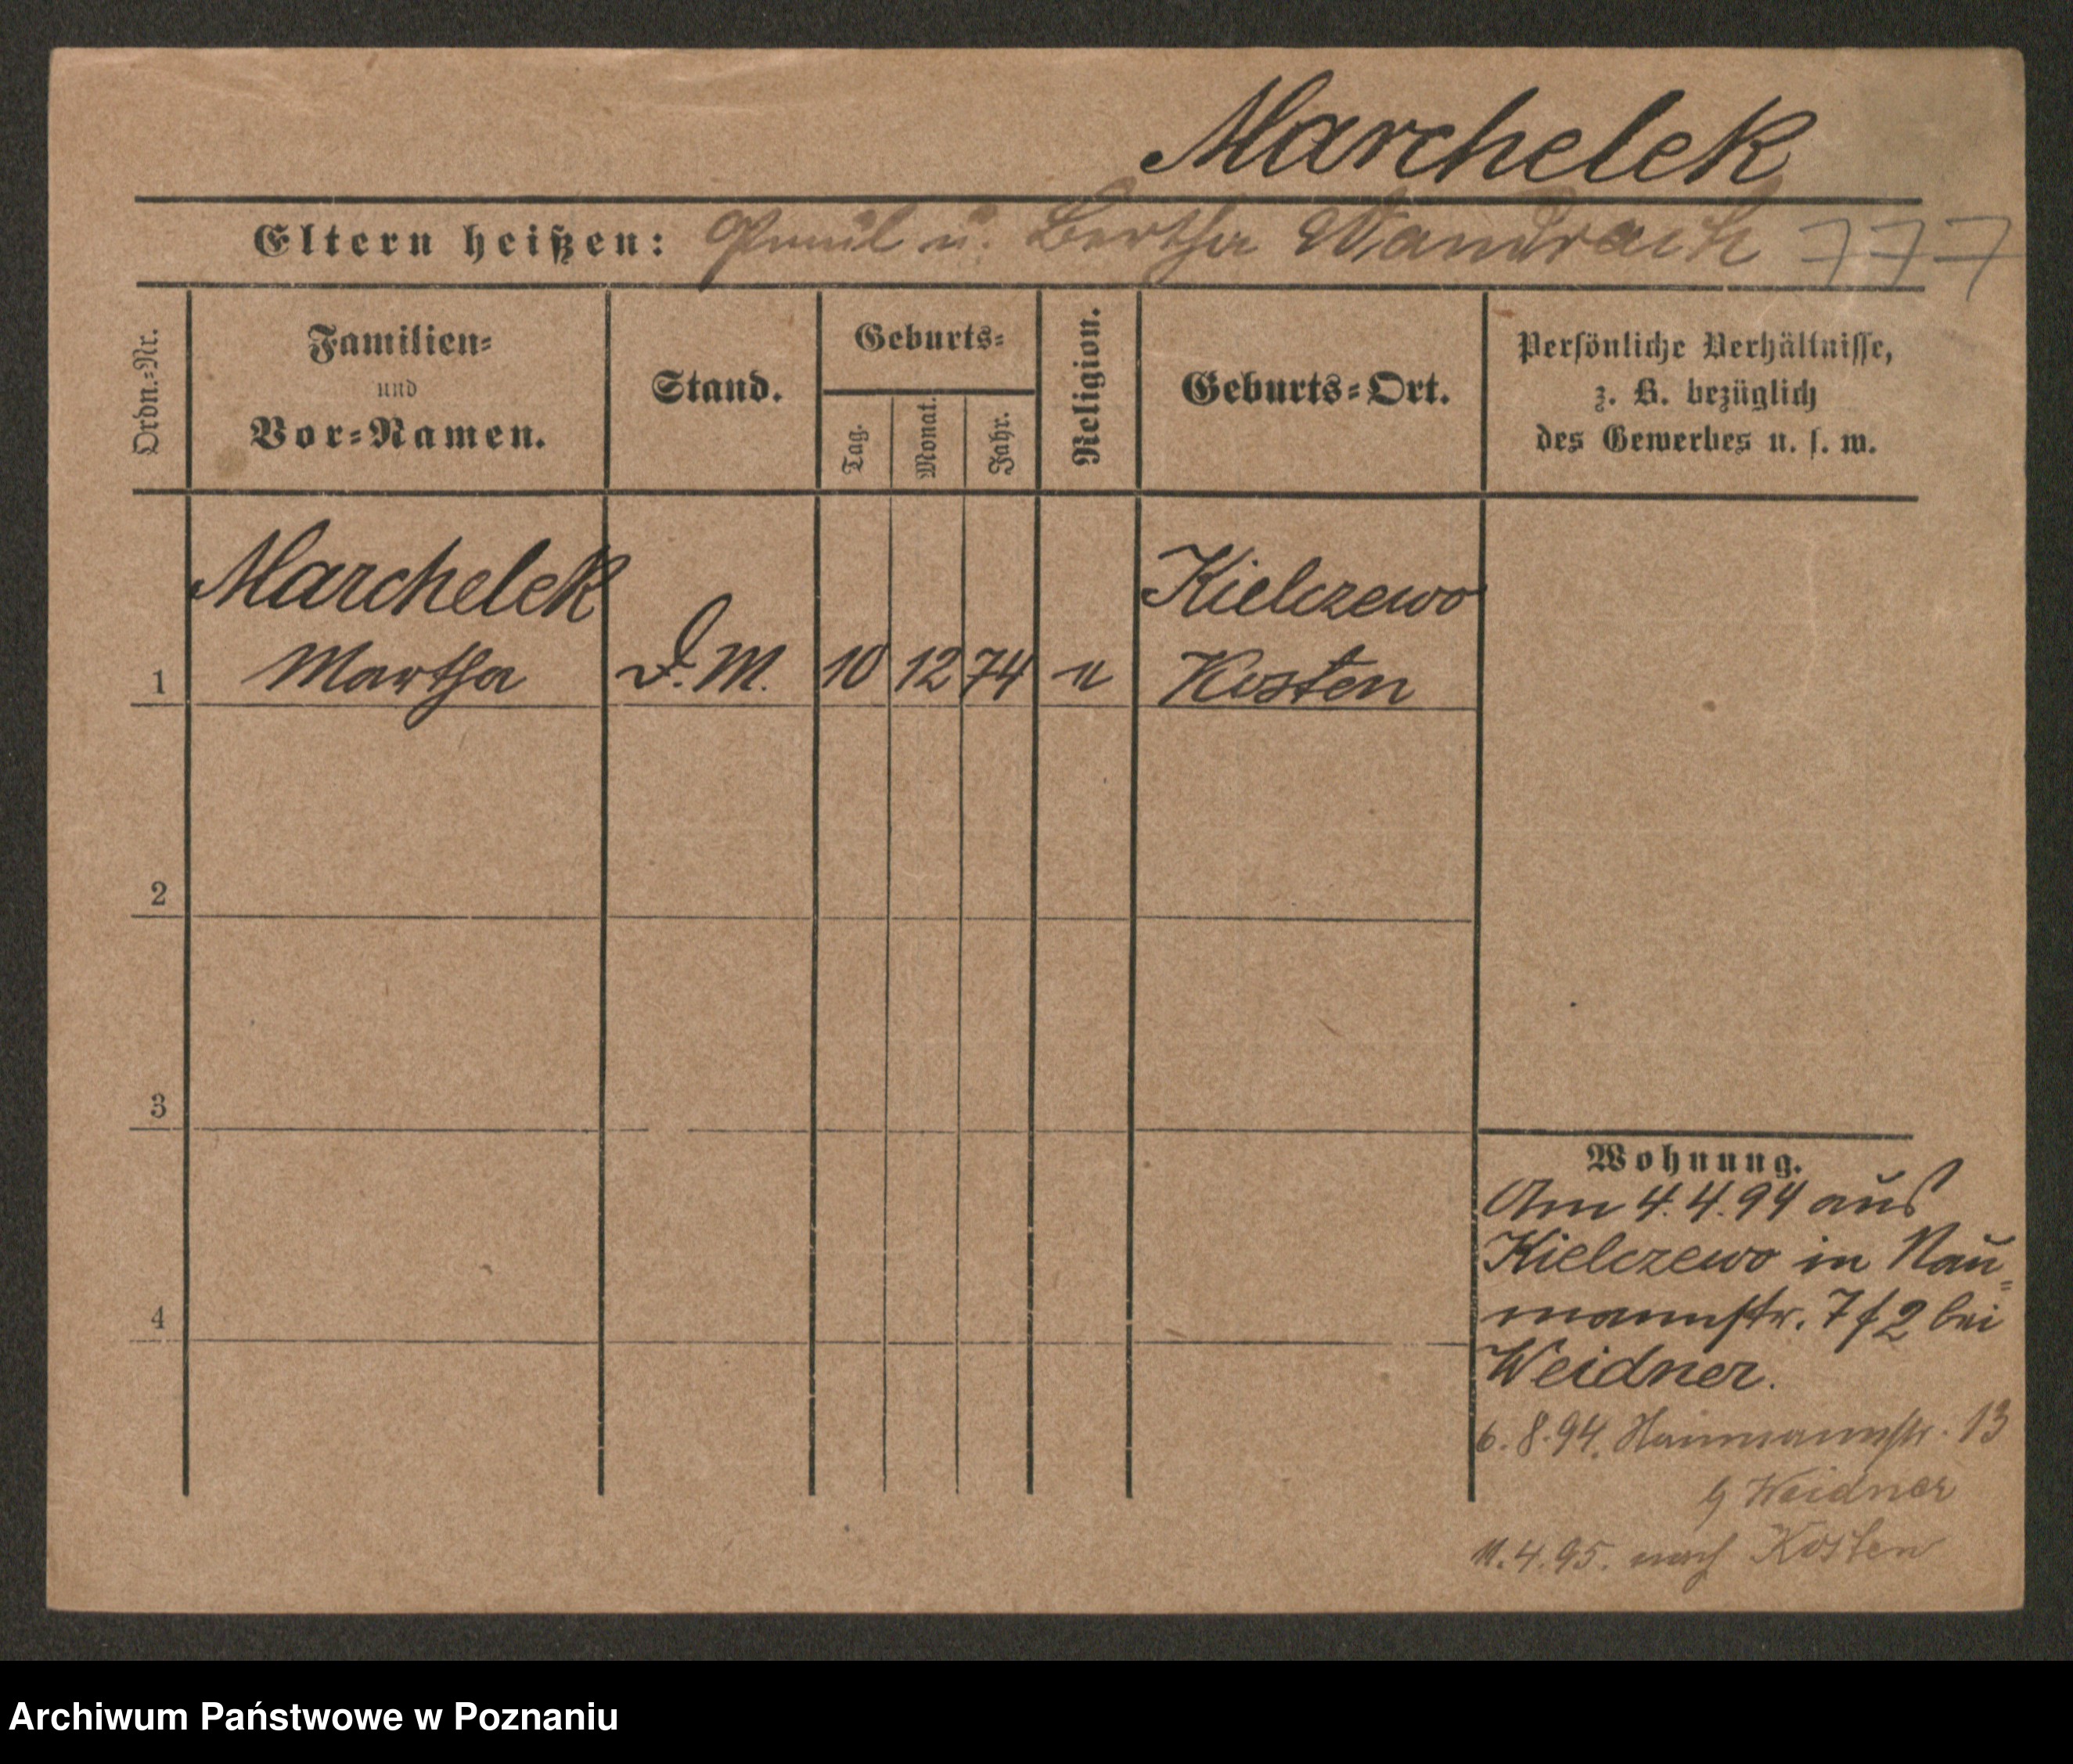 Marchelek
Eltern heißen: Paul u. Bertha Wandrach 777
Ordn.-Nr.
Familien-
und
Vor-Namen.
Stand.
Geburts-
Tag.
Monat.
Jahr.
Religion.
Geburts-Ort.
Persönliche Verhältnisse,
z. B. bezüglich
des Gewerbes u. s. w.
Marchelek Kielczewo
1 Martha D.M. 10 12 74 Kosten
2
3
4
Wohnung.
Am 4.4.94 aus
Kielczewo in Nau=
mannstr. 7 f 2 bei
Weidner.
6.8.94. Naumannstr. 13
Weidner
11.4.95. nach Kosten
Archiwum Państwowe w Poznaniu